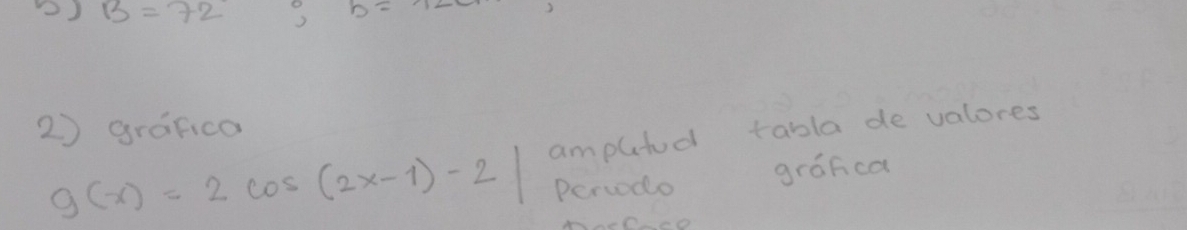 5) B = 72° ; b = 12
2) gráfica
g(x) = 2 cos (2x-1) - 2 | amplitud
periodo
desfase
tabla de valores
gráfica